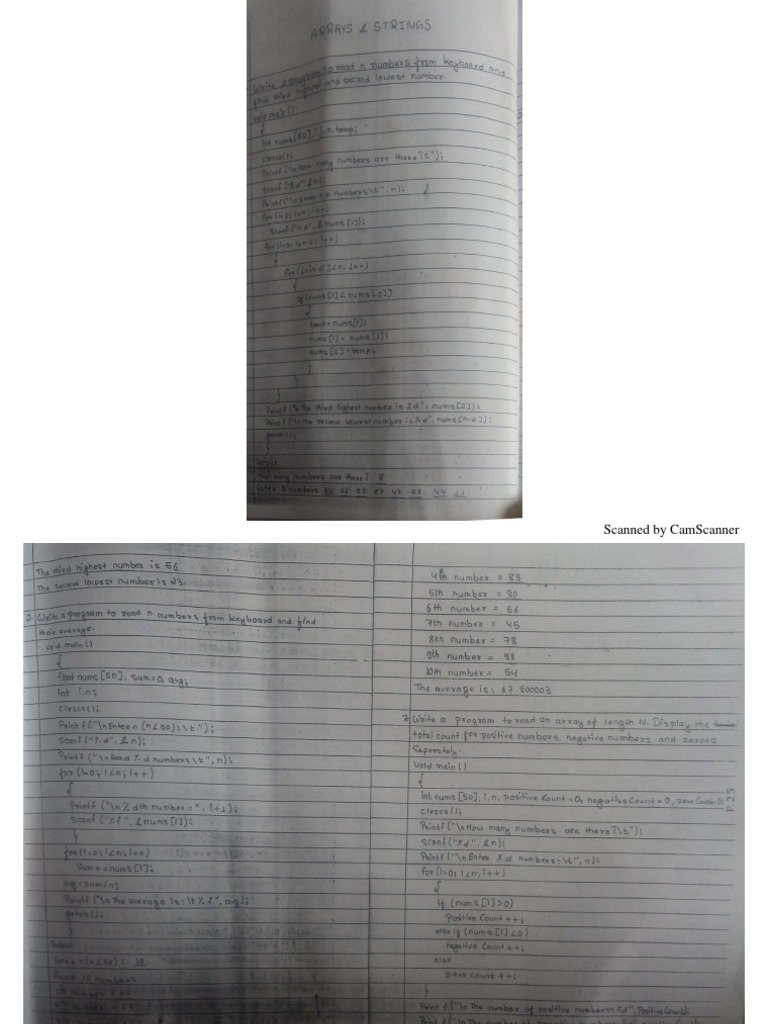 ARRAYS & STRINGS
Write a program to read n numbers from keyboard and
find third highest and second lowest number.
void main()
{
int nums[50], i, j, n, temp;
clrscr();
Printf("\n How many numbers are there?\t");
scanf("%d", &n);
Printf("\n Enter %d numbers:\t", n);
for(i=0; i<n; i++)
scanf("%d", &nums[i]);
for(i=0; i<n-1; i++)
{
for(j=i+1; j<n; j++)
{
if(nums[i]<nums[j])
{
temp=nums[i];
nums[i]= nums[j];
nums[j]=temp;
}
}
}
Printf("\n The third highest number is %d", nums[2]);
Printf("\n The second lowest number is %d", nums[n-2]);
getch();
}
Output
How many numbers are there? 8
Enter 8 numbers
Scanned by CamScanner
The third highest number is 56
The second lowest number is 23
2. Write a program to read n numbers from keyboard and find
their average.
void main()
{
float nums[50], sum=0, avg;
Int i,n;
Clrscr();
Printf("\nEnter n (n<50):\t");
Scanf("%d", &n);
Printf("\nRead %d numbers\t", n);
for(i=0; i<n; i++)
{
Printf("\n%dth number=", i+1);
Scanf("%f", &nums[i]);
}
for(i=0; i<n; i++)
Sum+=nums[i];
avg=sum/n;
Printf("\n The average is:\t%f", avg);
getch();
}
Output
Enter n(n<50): 10
Read 10 numbers
4th number = 89
5th number = 90
6th number = 66
7th number = 45
8th number = 78
9th number = 98
10th number = 54
The average is: 67.800003
3. Write a program to read an array of length N. Display the
total count for positive numbers, negative numbers and zeroes
Seperately.
Void main()
{
Int nums[50], i, n, positive Count=0, negativeCount=0, zeroCount=0;
Clrscr();
Printf("\nHow many numbers are there?\t");
Scanf("%d", &n);
Printf("\nEnter %d numbers:\t", n);
for(i=0; i<n; i++)
{
If (nums[i]>0)
Positive Count++;
else if (nums[i]<0)
negative Count++;
else
zero count++;
}
Printf("\n The number of positive numbers:%d", PositiveCount);